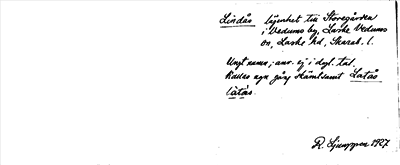 Lindås lägenhet till Storegården
i Vedums by, Laske Vedums
sn, Laske hd, Skarab. l.
Ungt namn; anv. ej i dgl. tal.
Kallas ngn gång skämtsamt Latås
latås.
R. Ljunggren 1927